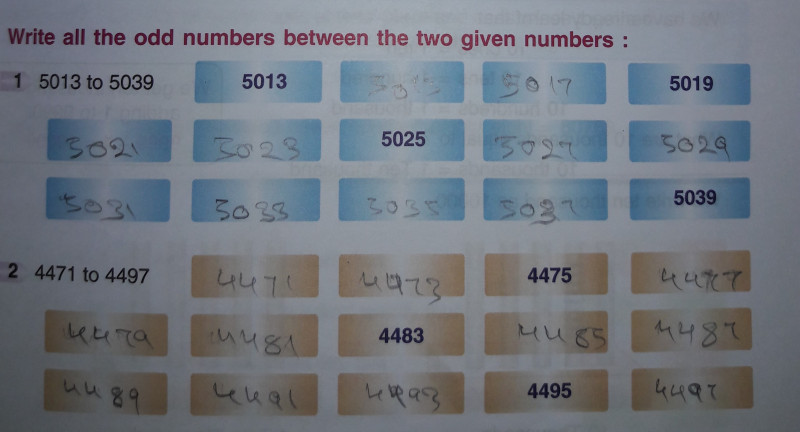 Write all the odd numbers between the two given numbers :
1 5013 to 5039 5013 5015 5017 5019
5021 5023 5025 5027 5029
5031 5033 5035 5037 5039
2 4471 to 4497 4471 4473 4475 4477
4479 4481 4483 4485 4487
4489 4491 4493 4495 4497